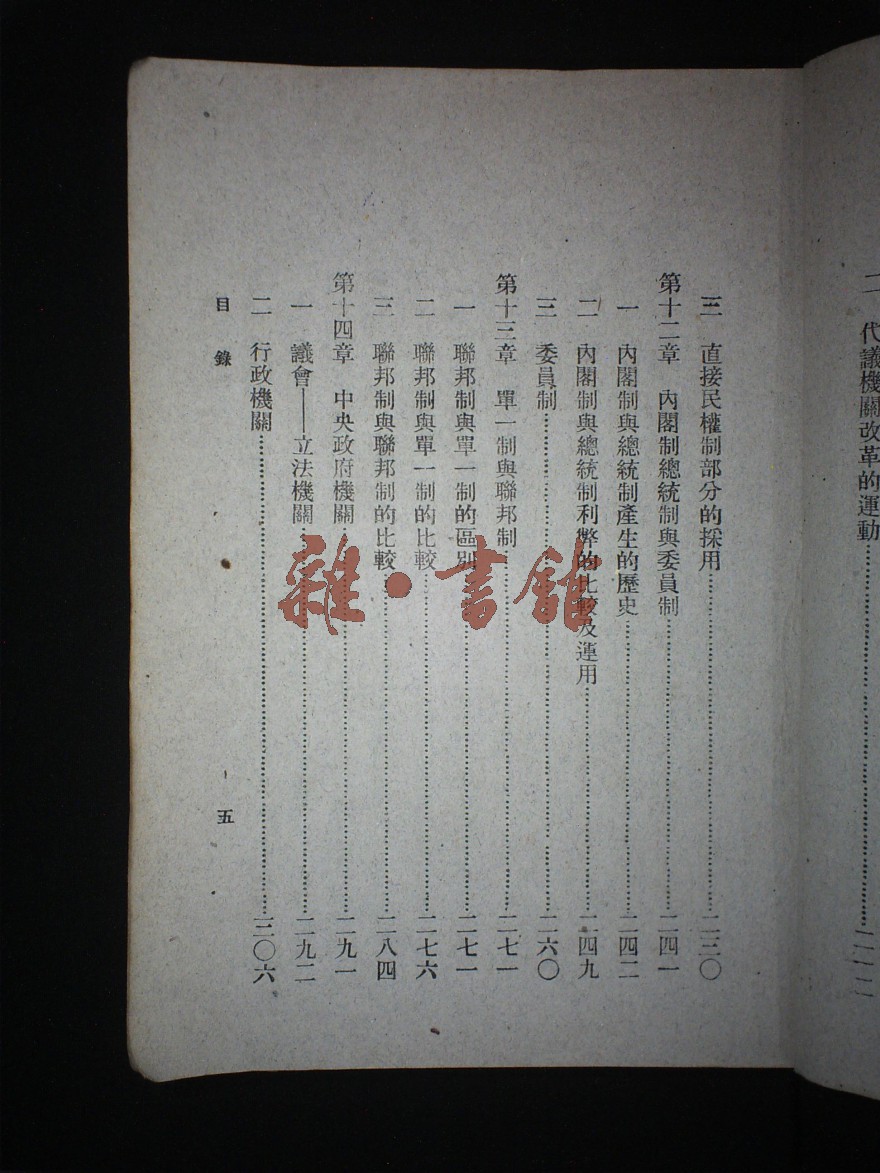 二　代議機關改革的運動……二一二
三　直接民權制部分的採用……二三〇
第十二章　內閣制總統制與委員制……二四一
一　內閣制與總統制產生的歷史……二四二
二　內閣制與總統制利弊的比較及運用……二四九
三　委員制……二六〇
第十三章　單一制與聯邦制……二七一
一　聯邦制與單一制的區別……二七一
二　聯邦制與單一制的比較……二七六
三　聯邦制與聯邦制的比較……二八四
第十四章　中央政府機關……二九一
一　議會——立法機關……二九二
二　行政機關……三〇六
目錄
五
雜·書館